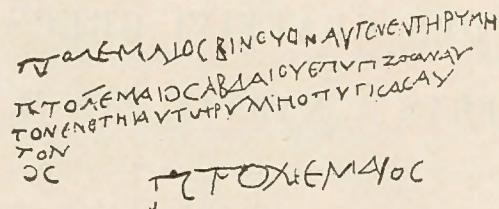 ΠΟΛΕΜΑΙΟCΒΙΝCΥΟΝΑΥΤΟΝΕΝΤΗΡΥΜΗ
ΠΤΟΛΕΜΑΙΟCΑΒΔΑΙΟΥΕΠΥΠΖΟΑΝΑΥ
ΤΟΝΕΝΘΤΗΙΑΥΤΥΤΡΥΜΗΟΠΥΓΙCΑCΑΥ
ΤΟΝ
ϽC
ΠΤΟΛΕΜΑΙΟC